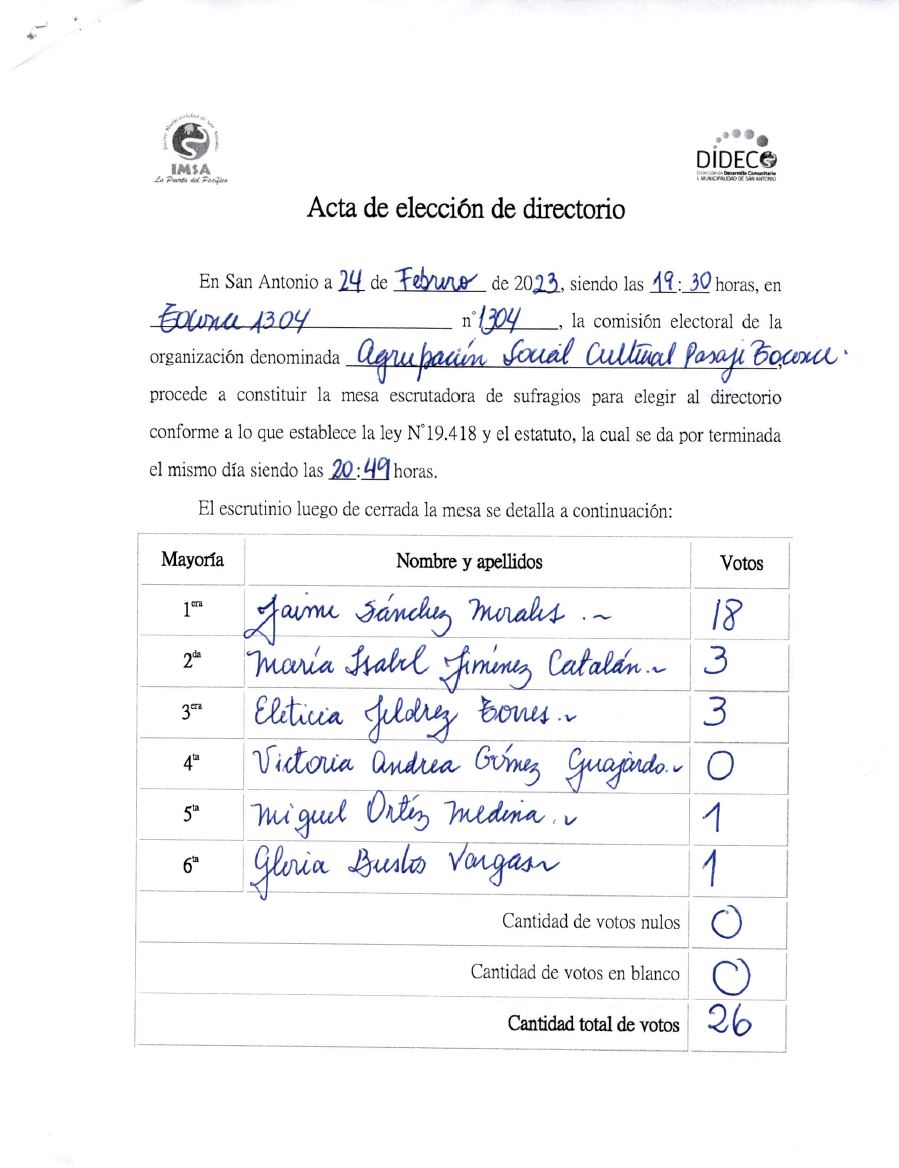 Ilustre Municipalidad de San Antonio
IMSA
La Puerta del Pacífico
DIDECO
Dirección de Desarrollo Comunitario
I. MUNICIPALIDAD DE SAN ANTONIO
Acta de elección de directorio
En San Antonio a 24 de Febrero de 2023, siendo las 19:30 horas, en
Toconce 1304 n° 1304, la comisión electoral de la
organización denominada Agrupación Social Cultural Pasaje Toconce.,
procede a constituir la mesa escrutadora de sufragios para elegir al directorio
conforme a lo que establece la ley N°19.418 y el estatuto, la cual se da por terminada
el mismo día siendo las 20:49 horas.
El escrutinio luego de cerrada la mesa se detalla a continuación:
Mayoría Nombre y apellidos Votos
1era Jaime Sánchez Morales .~ 18
2da María Isabel Jiménez Catalán.~ 3
3era Eleticia Jeldrez Torres.~ 3
4ta Victoria Andrea Gómez Guajardo.~ 0
5ta Miguel Ortíz Medina.~ 1
6ta Gloria Bustos Vargas~ 1
Cantidad de votos nulos 0
Cantidad de votos en blanco 0
Cantidad total de votos 26